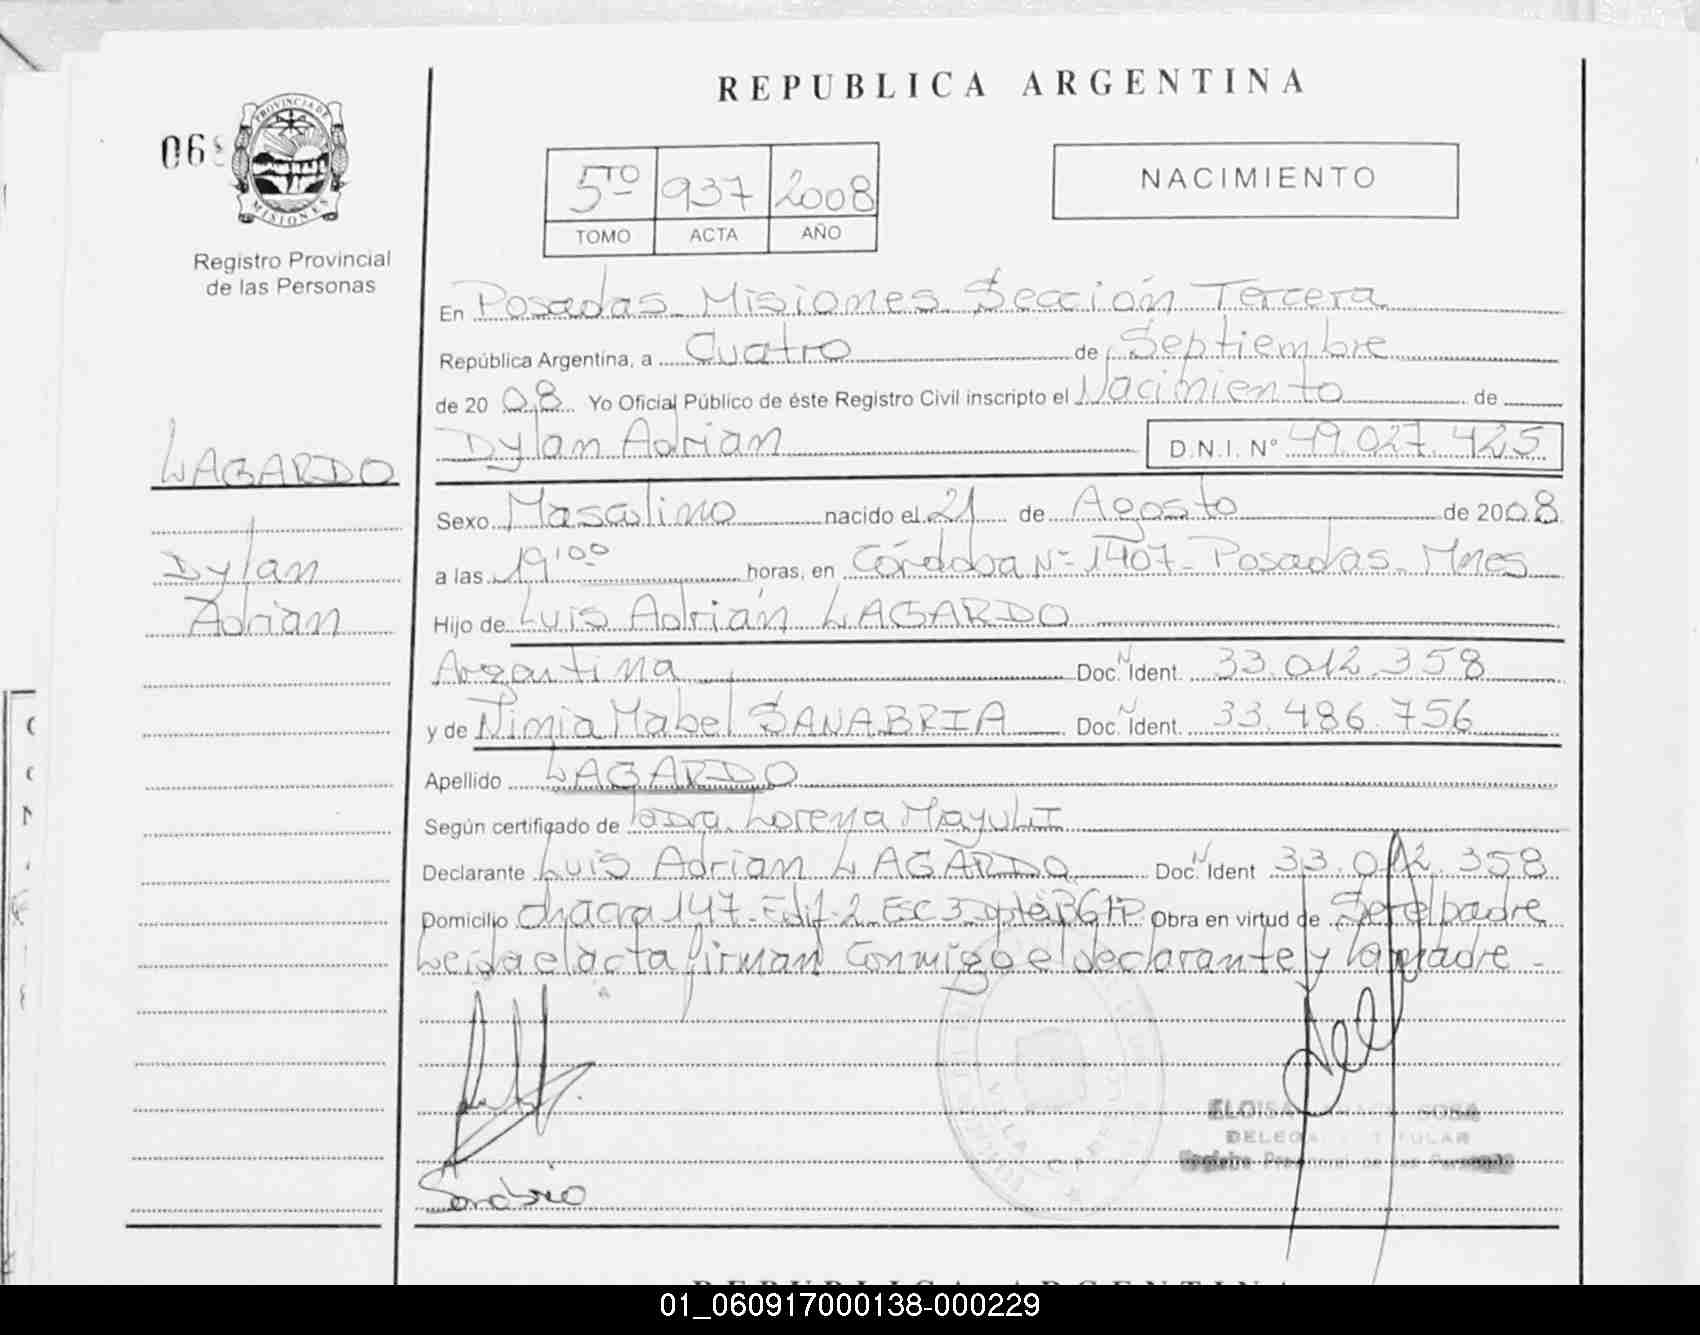 REPUBLICA ARGENTINA
06
PROVINCIA DE
MISIONES
Registro Provincial
de las Personas
5TO 937 2008
TOMO ACTA AÑO
NACIMIENTO
En Posadas Misiones Sección Tercera
República Argentina, a Cuatro de Septiembre
de 2008 Yo Oficial Público de éste Registro Civil inscripto el Nacimiento de
LAGARDO
Dylan Adrian D.N.I. Nº 49.027.425
Sexo Masculino nacido el 21 de Agosto de 2008
Dylan
Adrian
a las 19'00 horas, en Córdoba Nº 1407 - Posadas - Mnes
Hijo de Luis Adrián LAGARDO
Argentina Doc. N Ident. 33.012.358
y de Ninia Mabel SANABRIA Doc. N Ident. 33.486.756
Apellido LAGARDO
Según certificado de Lorena
Declarante Luis Adrian LAGARDO Doc. N Ident 33.012.358
Domicilio chacra 147 - Edif. 2 Esc 3 Obra en virtud de Ser el padre
Leida el acta firman conmigo el declarante y la madre -
ELOISA SOSA
DELEGA TITULAR
Registro Provincial de las Personas
REPUBLICA ARGENTINA
01_060917000138-000229